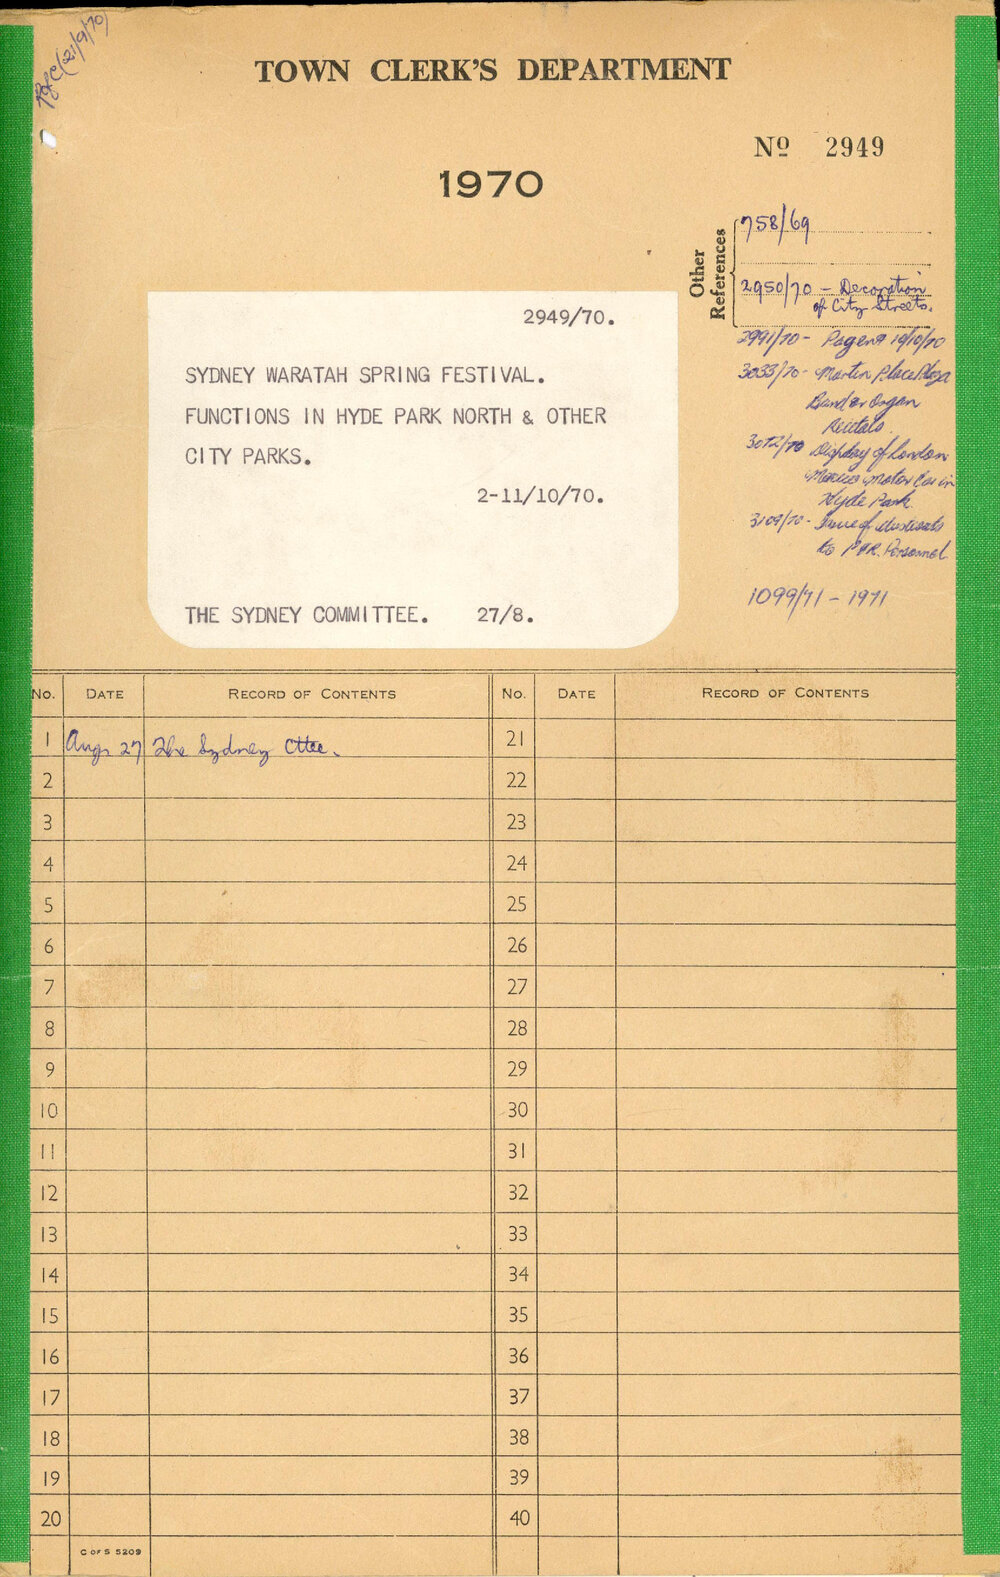 (21/9/70)
TOWN CLERK'S DEPARTMENT
Nº 2949
1970
Other References
758/69
2950/70 - Decoration
of City Streets.
2991/70 - Pagent 10/10/70
3033/70 - Martin Place Plaza
Band or Organ
Recitals.
3072/70 Display of London
Mexico Motor Car in
Hyde Park.
3109/70 - Issue of
to Personnel
1099/71 - 1971
2949/70.
SYDNEY WARATAH SPRING FESTIVAL.
FUNCTIONS IN HYDE PARK NORTH & OTHER
CITY PARKS.
2-11/10/70.
THE SYDNEY COMMITTEE. 27/8.
No. DATE RECORD OF CONTENTS No. DATE RECORD OF CONTENTS
1 Aug. 27 The Sydney Cttee. 21
2 22
3 23
4 24
5 25
6 26
7 27
8 28
9 29
10 30
11 31
12 32
13 33
14 34
15 35
16 36
17 37
18 38
19 39
20 40
C OF S 5209